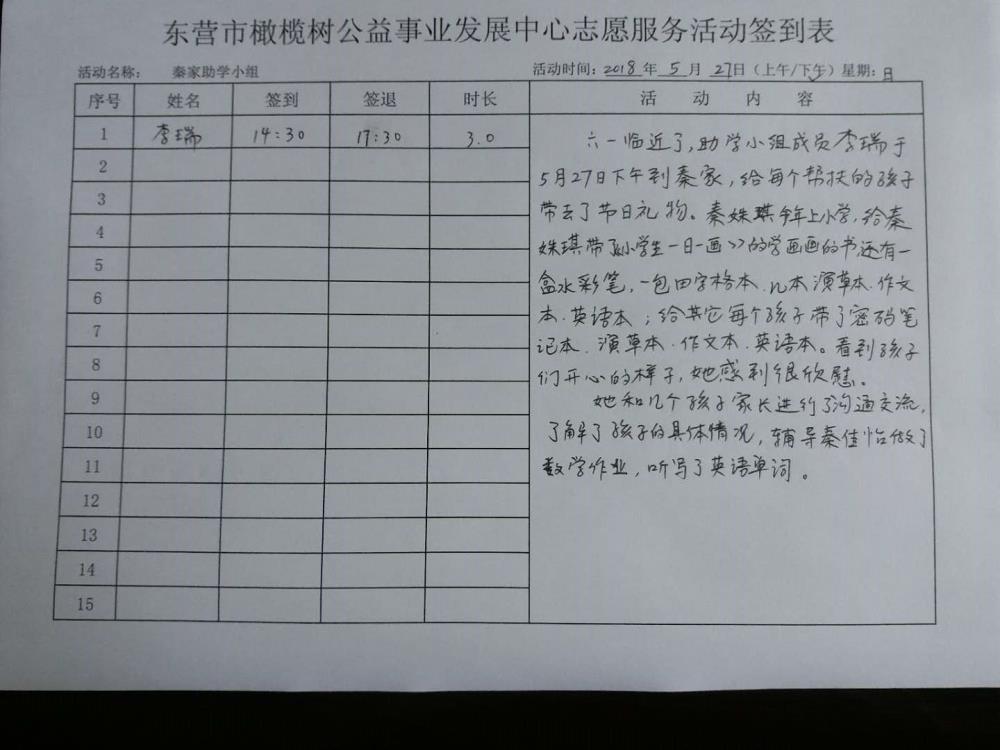 东营市橄榄树公益事业发展中心志愿服务活动签到表
活动名称: 秦家助学小组 活动时间:2018年 5月 27日(上午/下午)星期:日
序号 姓名 签到 签退 时长 活动内容
1 李瑞 14:30 17:30 3.0
2
3
4
5
6
7
8
9
10
11
12
13
14
15
六一临近了,助学小组成员李瑞于
5月27日下午到秦家,给每个帮扶的孩子
带去了节日礼物。秦姝琪今年上小学,给秦
姝琪带了《小学生一日一画》的学画画的书,还有一
盒水彩笔,一包田字格本、几本演草本、作文
本、英语本;给其它每个孩子带了密码笔
记本、演草本、作文本、英语本。看到孩子
们开心的样子,她感到很欣慰。
她和几个孩子家长进行了沟通交流,
了解了孩子的具体情况,辅导秦佳怡做了
数学作业,听写了英语单词。